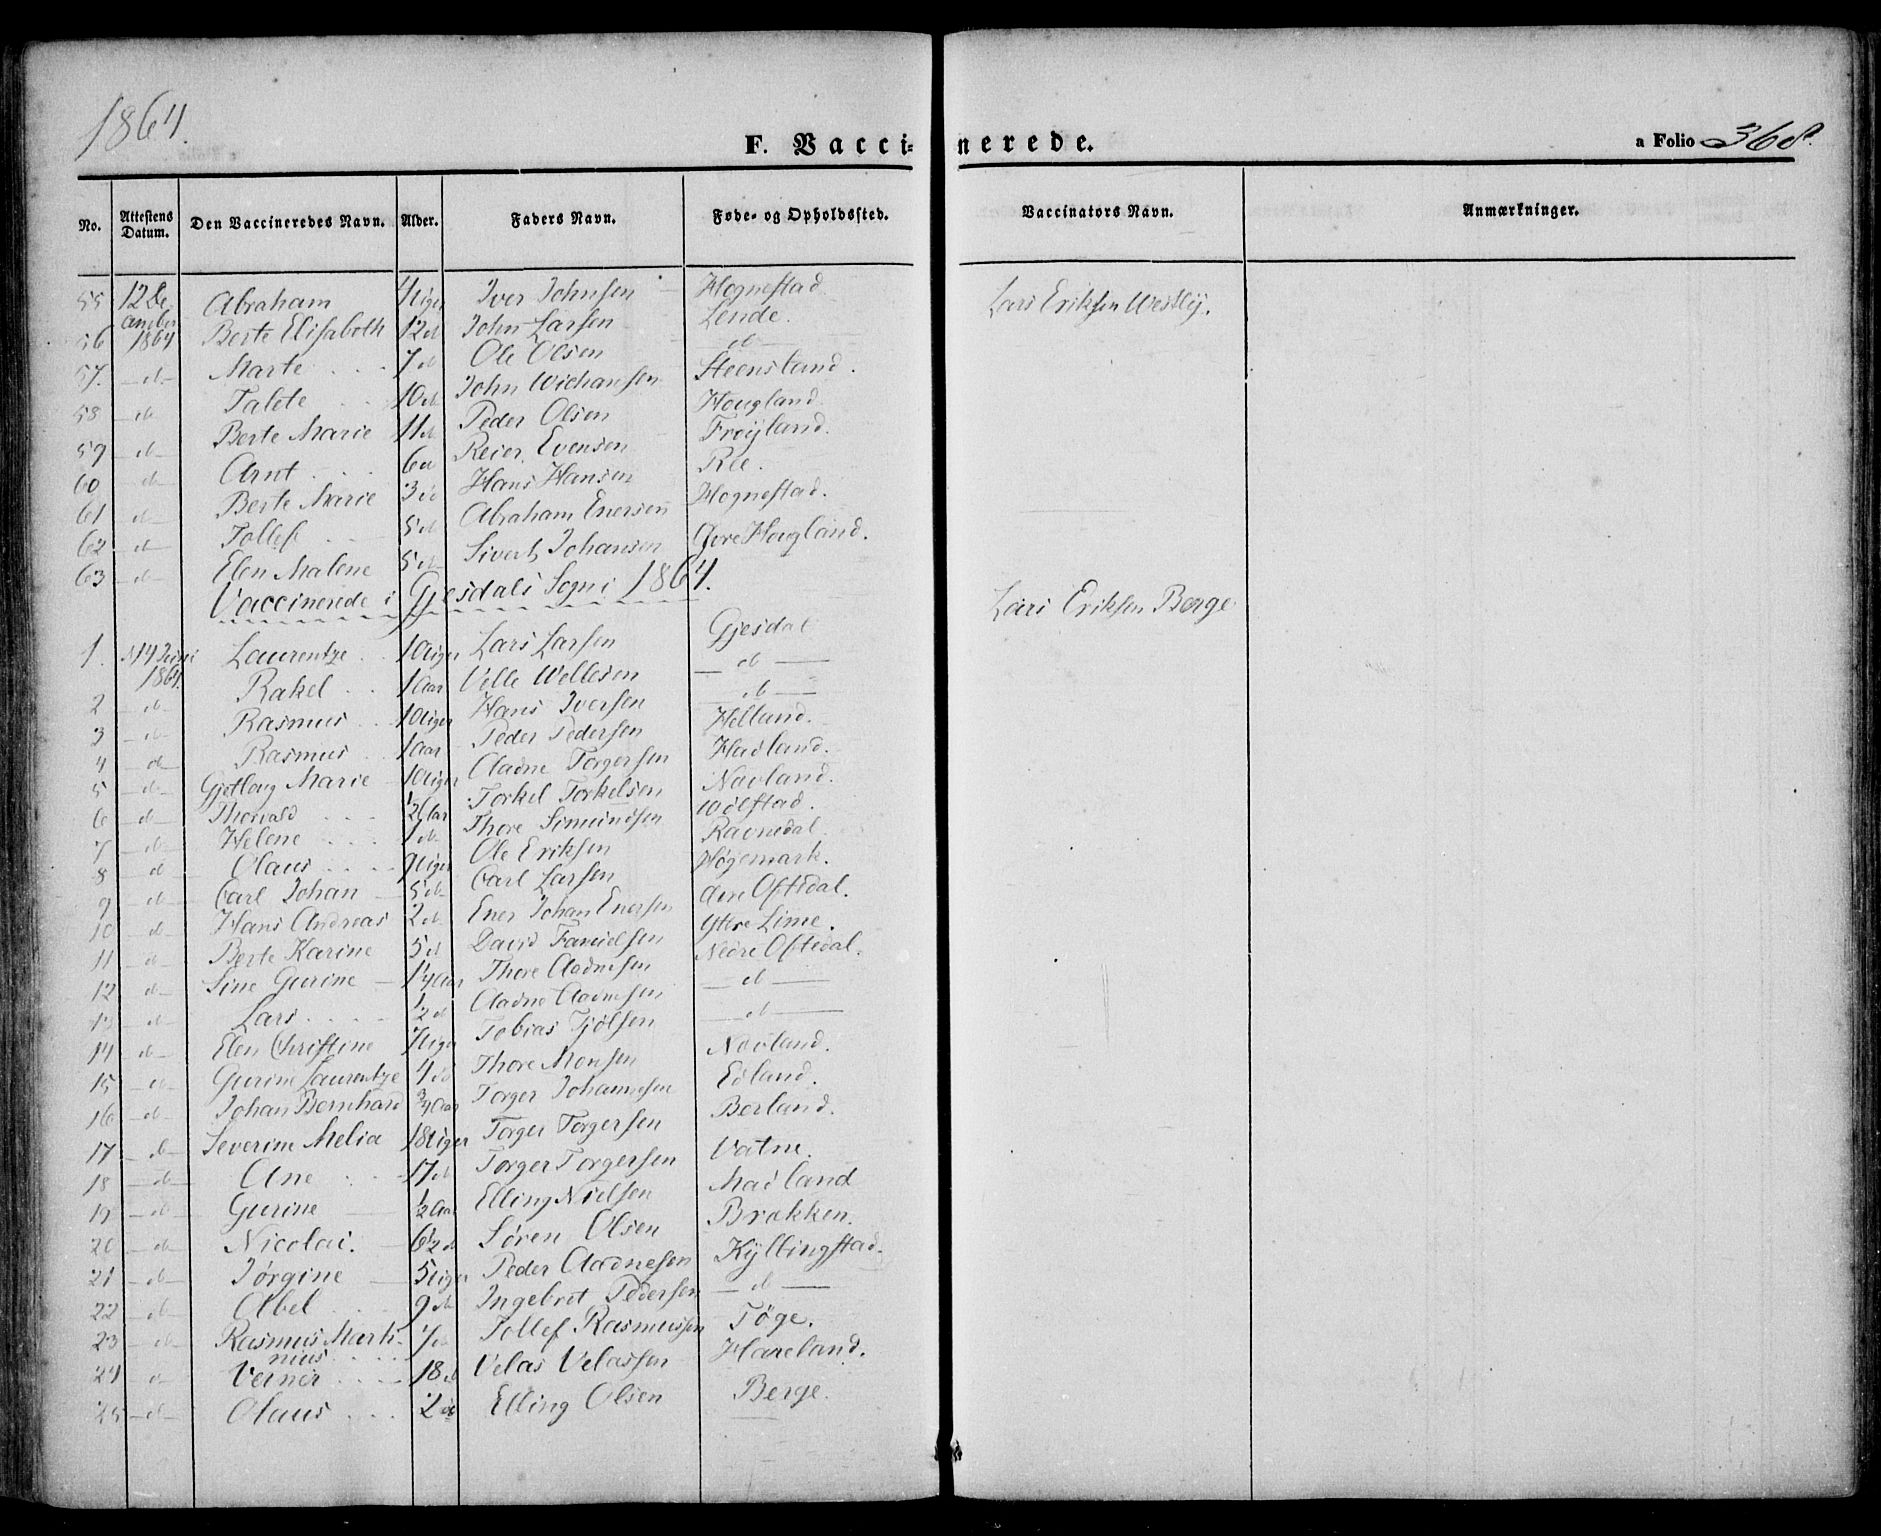 1864.
F. Vaccinerede.
a Folio 368.
No. | Attestens Datum. | Den Vaccineredes Navn. | Alder. | Faders Navn. | Føde- og Opholdssted. | Vaccinators Navn. | Anmærkninger.
55 | 12 De- | Abraham | 4 Uger | Iver Johnsen | Hognestad | Lars Eriksen Westly.
56 | cember 1864 | Berte Elisabeth | 12 d | John Larsen | Lende.
57. | d | Marte | 7 d | Ole Olsen | d
58 | d | Talete | 10 d | John Wichansen | Steensland.
59 | d | Berte Marie | 11 d | Peder Olsen | Hougland
60 | d | Arnt | 6 d | Reier Evensen | Frøyland.
61 | d | Berte Marie | 3 d | Hans Hansen | Ree.
62 | d | Tollef | 5 d | Abraham Enersen | Hognestad.
63 | d | Elen Malene | 5 d | Sivert Johansen | Øvre Hougland.
Vaccinerede i Gjesdals Sogn i 1864.
1. | 14 Juni 1864. | Laurentze | 10 Uger | Lars Larsen | Gjesdal | Lars Eriksen Berge
2 | d | Rakel | 1 Aar | Velle Wellesen | d
3 | d | Rasmus | 10 Uger | Hans Iversen | d
4 | d | Rasmus | 1 Aar | Peder Pedersen | Helland.
5 | d | Gjetloug Marie | 10 Uger | Aadne Torgersen | Havland.
6 | d | Thorvald | 1/2 Aar | Torkel Torkelsen | Navland.
7 | d | Helene | 1 d | Thore Simundsen | Wølstad.
8 | d | Olaus | 9 Uger | Ole Eriksen | Ravndal
9 | d | Carl Johan | 5 d | Carl Larsen | Høgemark.
10 | d | Hans Andreas | 2 d | Ener Johan Enersen | Øvre Oftedal.
11 | d | Berte Karine | 5 d | David Danielsen | Ytre Lime.
12 | d | Sine Gurine | 1/4 Aar | Thore Aadnesen | Nedre Oftedal.
13 | d | Lars | 1/2 d | Aadne Aadnesen | d
14 | d | Elen Christine | 7 Uger | Tobias Tjølsen | d
15 | d | Gurine Laurentze | 4 d | Thore Monsen | Navland.
16 | d | Johan Bernhard | 3/4 Aar | Torger Johannesen | Edland.
17 | d | Severine Melia | 18 Uger | Torger Torgersen | Berland.
18 | d | Ane | 17 d | Torger Torgersen | Vatne.
19 | d | Gurine | 1/2 Aar | Elling Nielsen | Madland
20 | d | Nicolai. | 6 1/2 d | Søren Olsen | Brekken.
21 | d | Jørgine | 5 Uger | Peder Aadnesen | Kyllingstad.
22 | d | Abel | 9 d | Ingebret Pedersen | d
23 | d | Rasmus Marti- | 7 d | Tollef Rasmussen | Føge.
nius
24 | d | Verner | 18 d | Velas Velassen | Haveland.
25 | d | Olaus | 2 d | Elling Olsen | Berge.